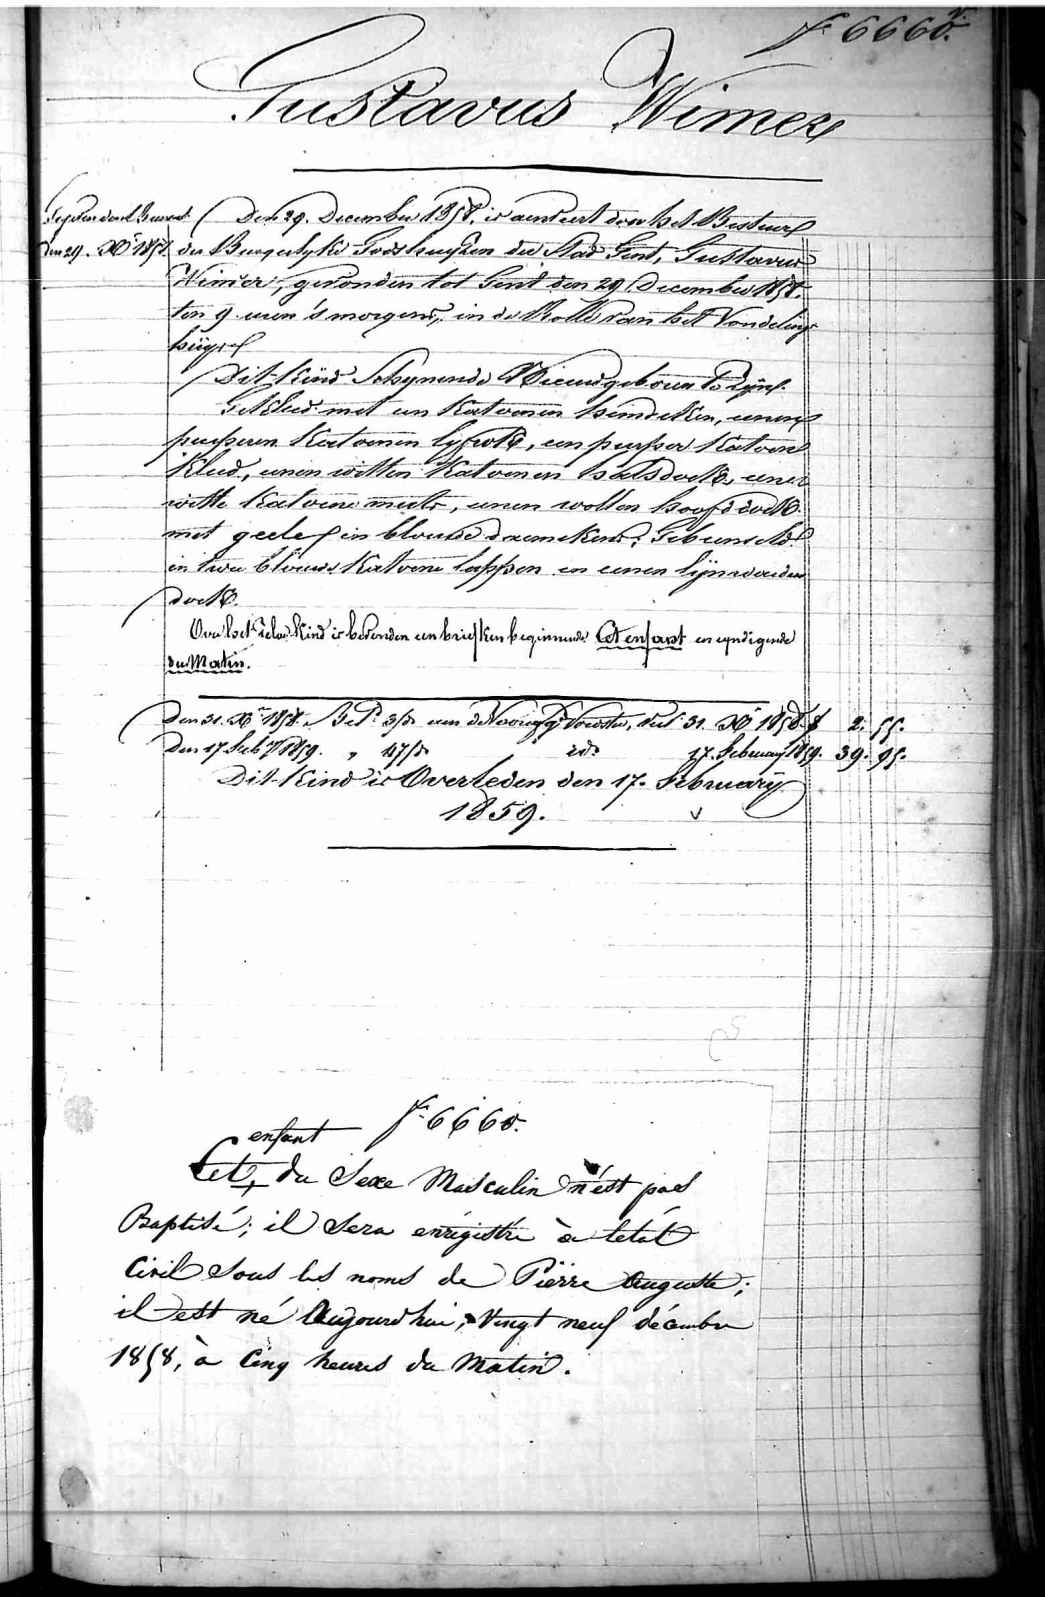 f° 6660.
Gustavus Wimer
Den 29. December 1858. is aenveert door het Bestuur
den 29. Xr 1858. der Burgerlyke Godshuyzen der Stad Gent, Gustavus
Wimer, gevonden tot Gent den 29 December 1858.
ten 9 uren 's morgens, in de Rolle van het Vondeling
huys
Dit Kind Schynende Nieuwgeboren te zyn
Gekleed met een Katoenen hemdeken, eenen
purperen Katoenen lyfrok, een purper Katoen
Kleed, eenen witten Katoenen halsdoek, eene
witte katoene muts, eenen wollen hoofddoek
met geele en blauwe bloemekens, Gebunseld
in twee blauwe Katoene lappen en eenen lynwaeden
doek.
Over het zelve Kind is bevonden een briefken beginnende Cet enfant en eyndigende
du Matin.
Den 31. Xr 1858. Bet. 3/d. aen de Voorst, tot 31. Xr 1858. f 2. 55.
Den 17 Feby 1859. " 47/d id. 17 February 1859. 39. 95.
Dit Kind is Overleden den 17. February
1859.
f° 6660.
enfant
Cet, du Sexe Masculin n'est pas
Baptisé; il Sera enrégistré à l'état
Civil Sous les noms de Pïérre Auguste;
il est né Aujourd'hui, Vingt neuf décembre
1858, à Cinq heures du Matin.